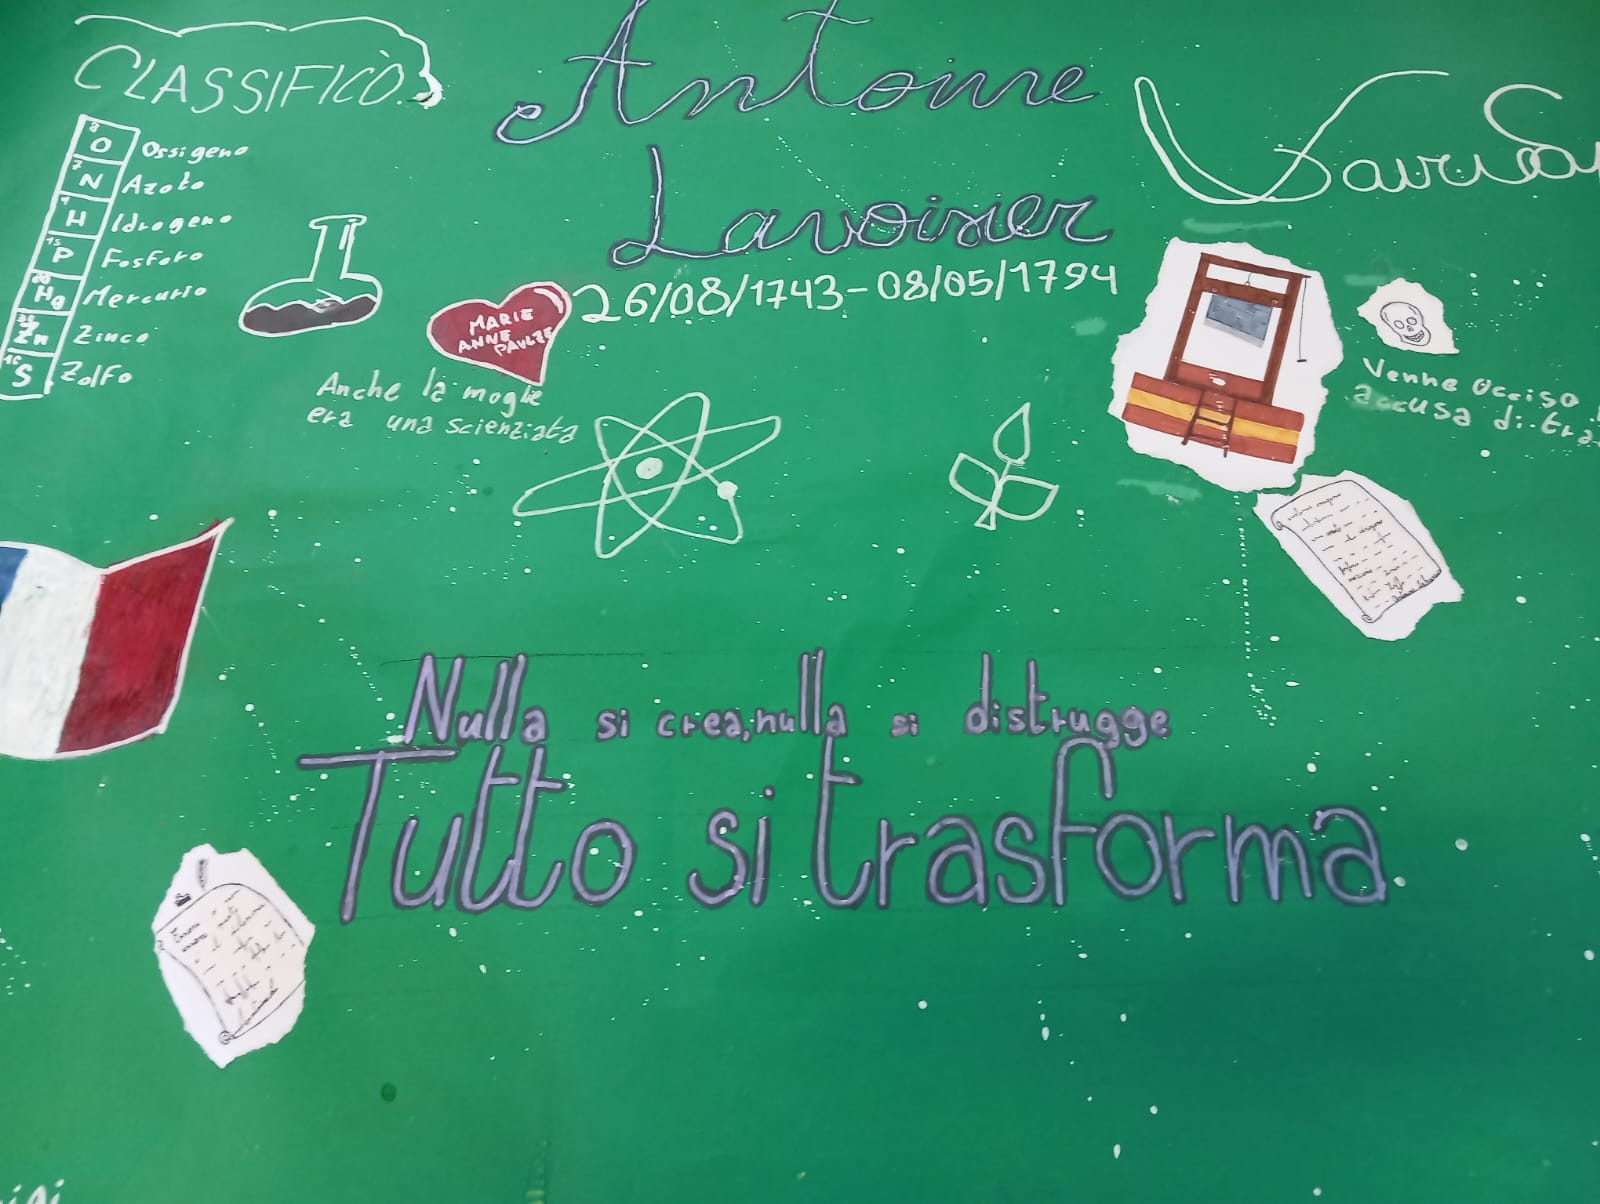 CLASSIFICÒ.
8
O Ossigeno
7
N Azoto
1
H Idrogeno
15
P Fosforo
80
Hg Mercurio
Zn Zinco
16
S Zolfo
Antoine
Lavoisier
26/08/1743-08/05/1794
MARIE
ANNE
PAULZE
Anche la moglie
era una scienziata
Venne Ucciso
accusa di
Nulla si crea,nulla si distrugge
Tutto si trasforma